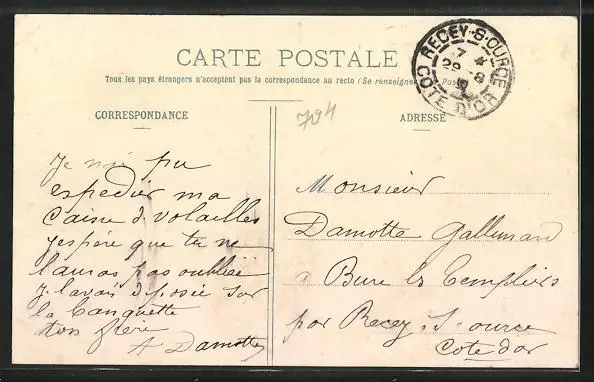 CARTE POSTALE
Tous les pays étrangers n'acceptent pas la correspondance au recto (Se renseigner
Poste
RECEY-S-OURCE
7
29 -8
COTE D'OR
CORRESPONDANCE
794
ADRESSE
Je n'ai pu
expedier ma
Caisse d. volailles
J'espère que tu ne
l'auras pas oubliée
Je l'avais déposée sur
la banquette
ton frère
A Damotte
Monsieur
Damotte Gallimard
a Bure les Templiers
par Recey. S. ource
Cote d'or